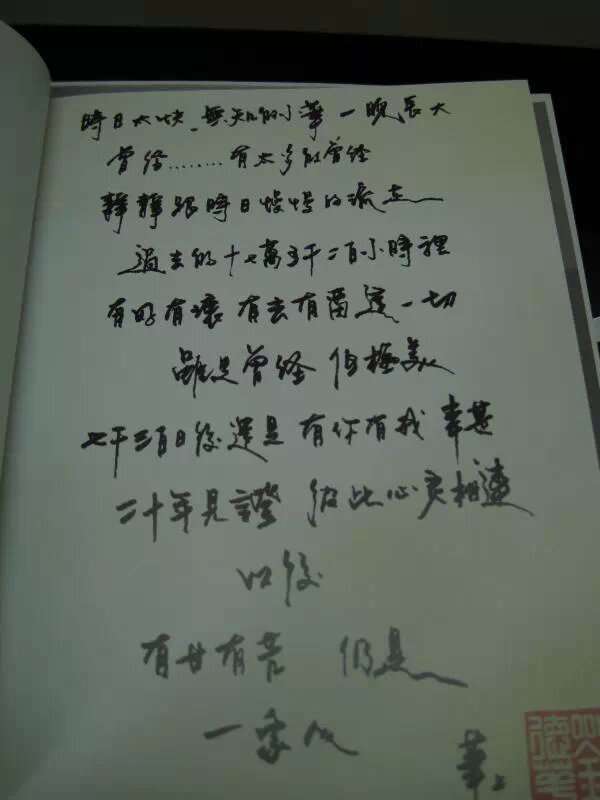 時日太快，無知的小華一晚長大
曾經………有太多的曾經
靜靜跟時日慢慢的流走
過去的十七萬五千二百小時裡
有好有壞 有去有留 這一切
雖是曾經 但極美
七千三百日後還是 有你有我 幸甚
二十年見證 彼此心灵相連
以後
有甘有苦 仍是
一家人
華上
德華